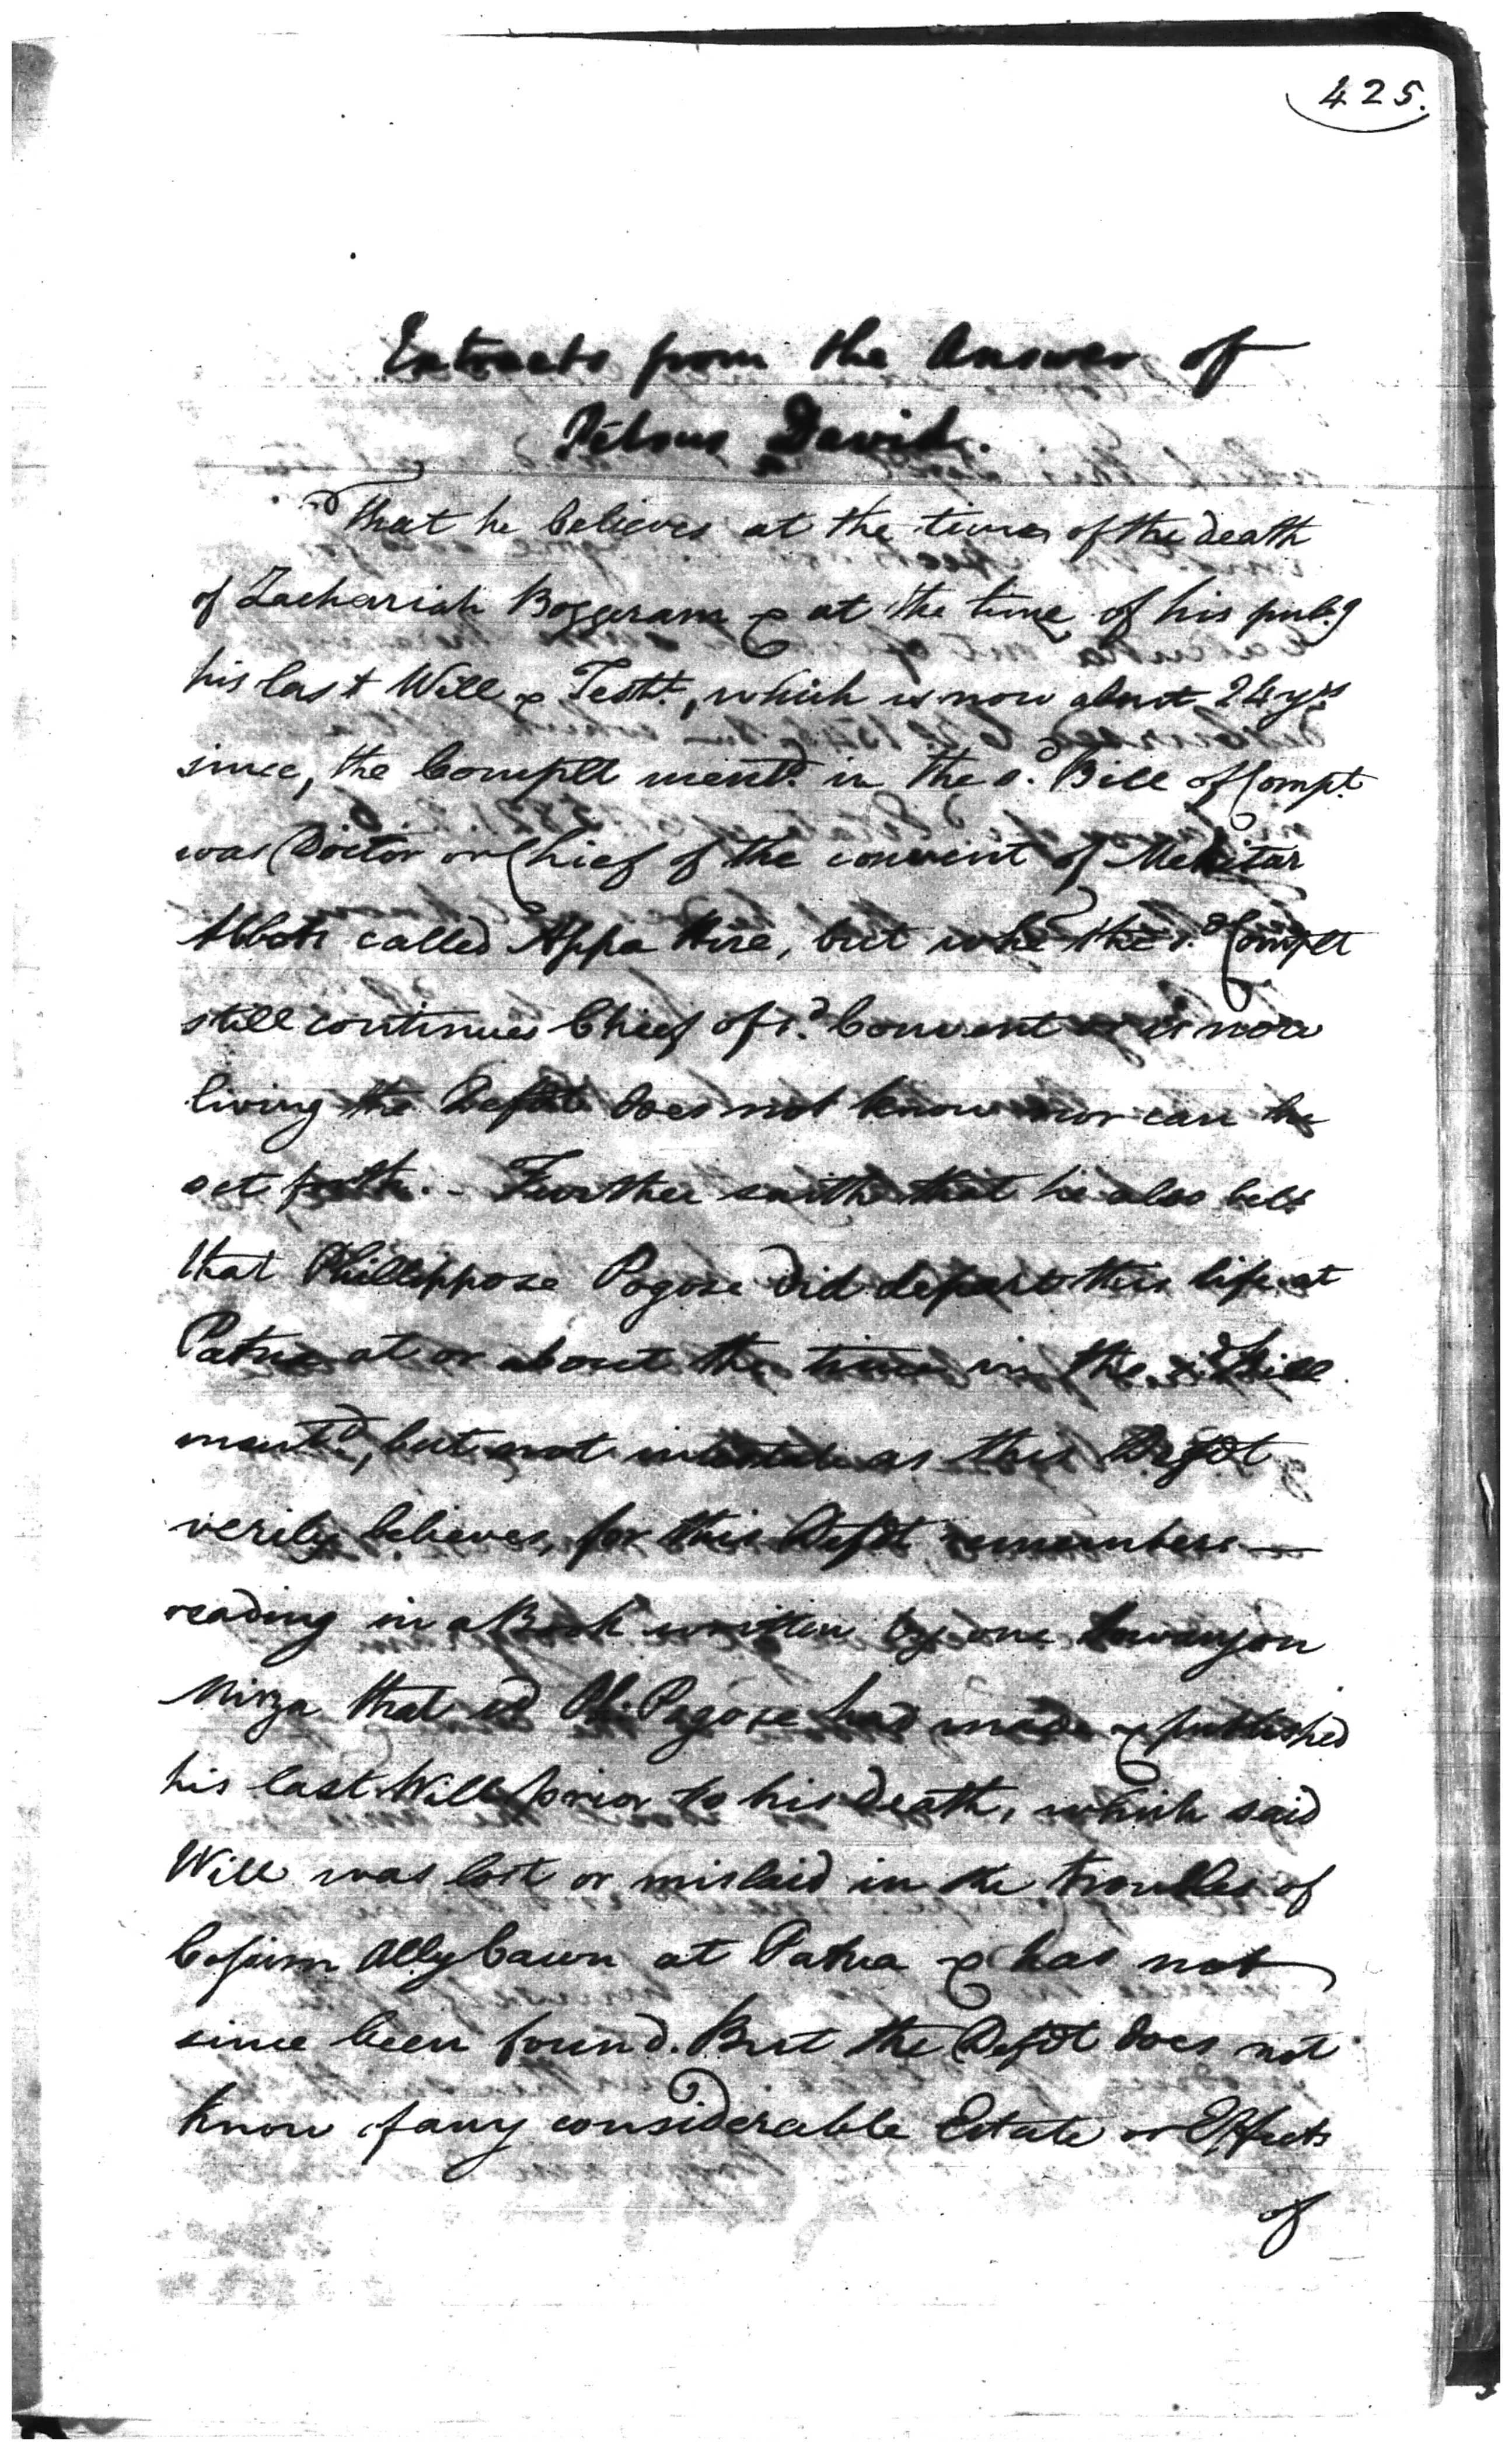 425.
Extracts from the Answer of
Petrus David.
That he believes at the time of the death
of Zachariah Boggeram & at the time of his pub.g
his last Will & Testt., which is now about 24 yrs
since, the Complt mentd. in the sd. Bill of Compt.
was Doctor or Chief of the convent of Mekitar
Abbot called Appa Hire, but whe the sd. Complt
still continues Chief of sd. Convent or is now
living the Defdt does not know nor can he
set forth. - Further saith that he also bels
that Phillippose Pogose did depart this life at
Patna at or about the time in the sd. Bill
mentd., but not intestate as this Defdt
verily believes, for this Defdt remembers
reading in a Book written by one
Mirza that sd Ph. Pogose had made & published
his last Will prior to his death, which said
Will was lost or mislaid in the troubles of
Cossim Ally Cawn at Patna & has not
since been found. But the Defdt does not
know of any considerable Estate or Effects
of